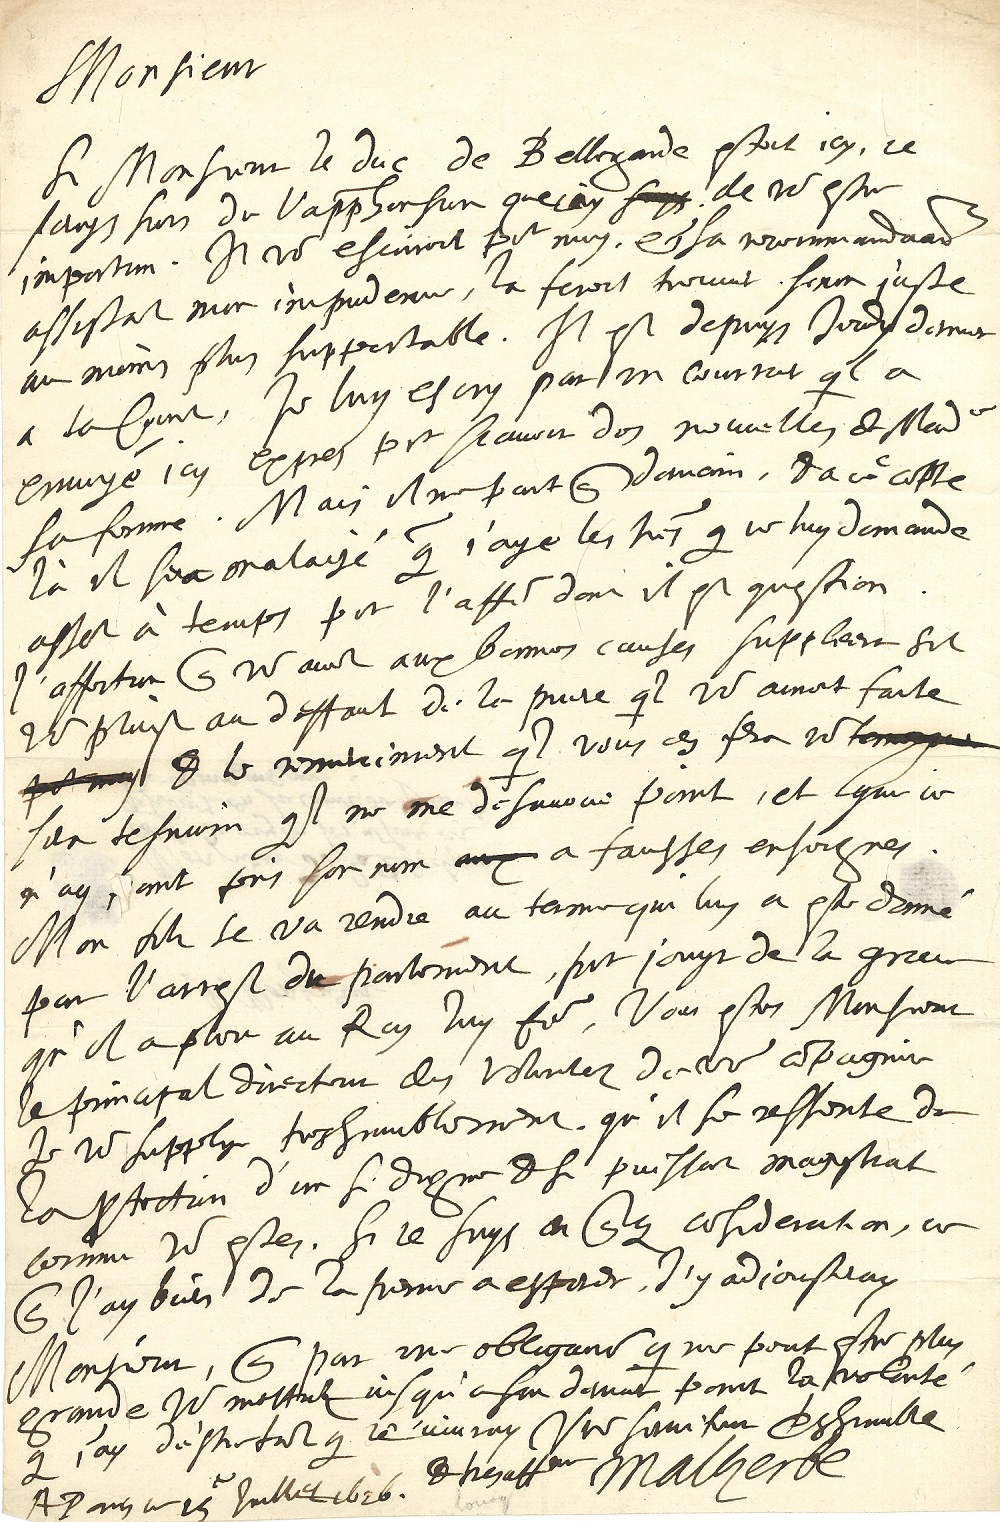 Monsieur
Si Monsieur le duc de Bellegarde estoit icy, ie
seroys hors de l'apprehension que i'ay de vo estre
importun. Il vo escriroit pr moy, et sa recommandaon
assistat mon impudence, la feroit trouuer sinon juste
au moins plus supportable. Il est depuys Jeudy dernier
a la Court, Je luy escry par un courrier ql a
enuoyé icy expres pr scauoir des nouuelles de Made
sa femme. Mais il ne part que demain, de ce coste
là il sera malaisé que j'aye les lres q ie luy demande
assez à temps pr l'affre dont il est question.
l'affection que vo auez aux bonnes causes suppleera sil
vo plaist au deffaut de la priere ql vo auroit faite
& le remerciment ql vous en fera vo
sera tesmoin ql ne me desauoue point, et que ie
n'ay point pris son nom a fausses enseignes.
Mon filz se va rendre au terme qui luy a esté donné
par l'arrest du parlement, pr jouyr de la grace
qu'il a pleu au Roy luy fre, Vous estes Monsieur
le principal directeur des volontez de vre copagnie
Je vo supplye treshumblement qu'il se ressente de
la ptection d'un si digne & si puissat magistrat
comme vo estes. Si ie suys en quelq cosideration, ce
que j'ay bien de la peine a esperer, j'y adiousteray
Monsieur, que par une obligaon q ne peut estre plus
grande vo mettrez iusqu'a son dernier point la volonté
q j'ay d'estre tat q ie viuray Vre seruiteur treshumble
A Paris ce 15e Juillet 1626. & tresaffne Malherbe